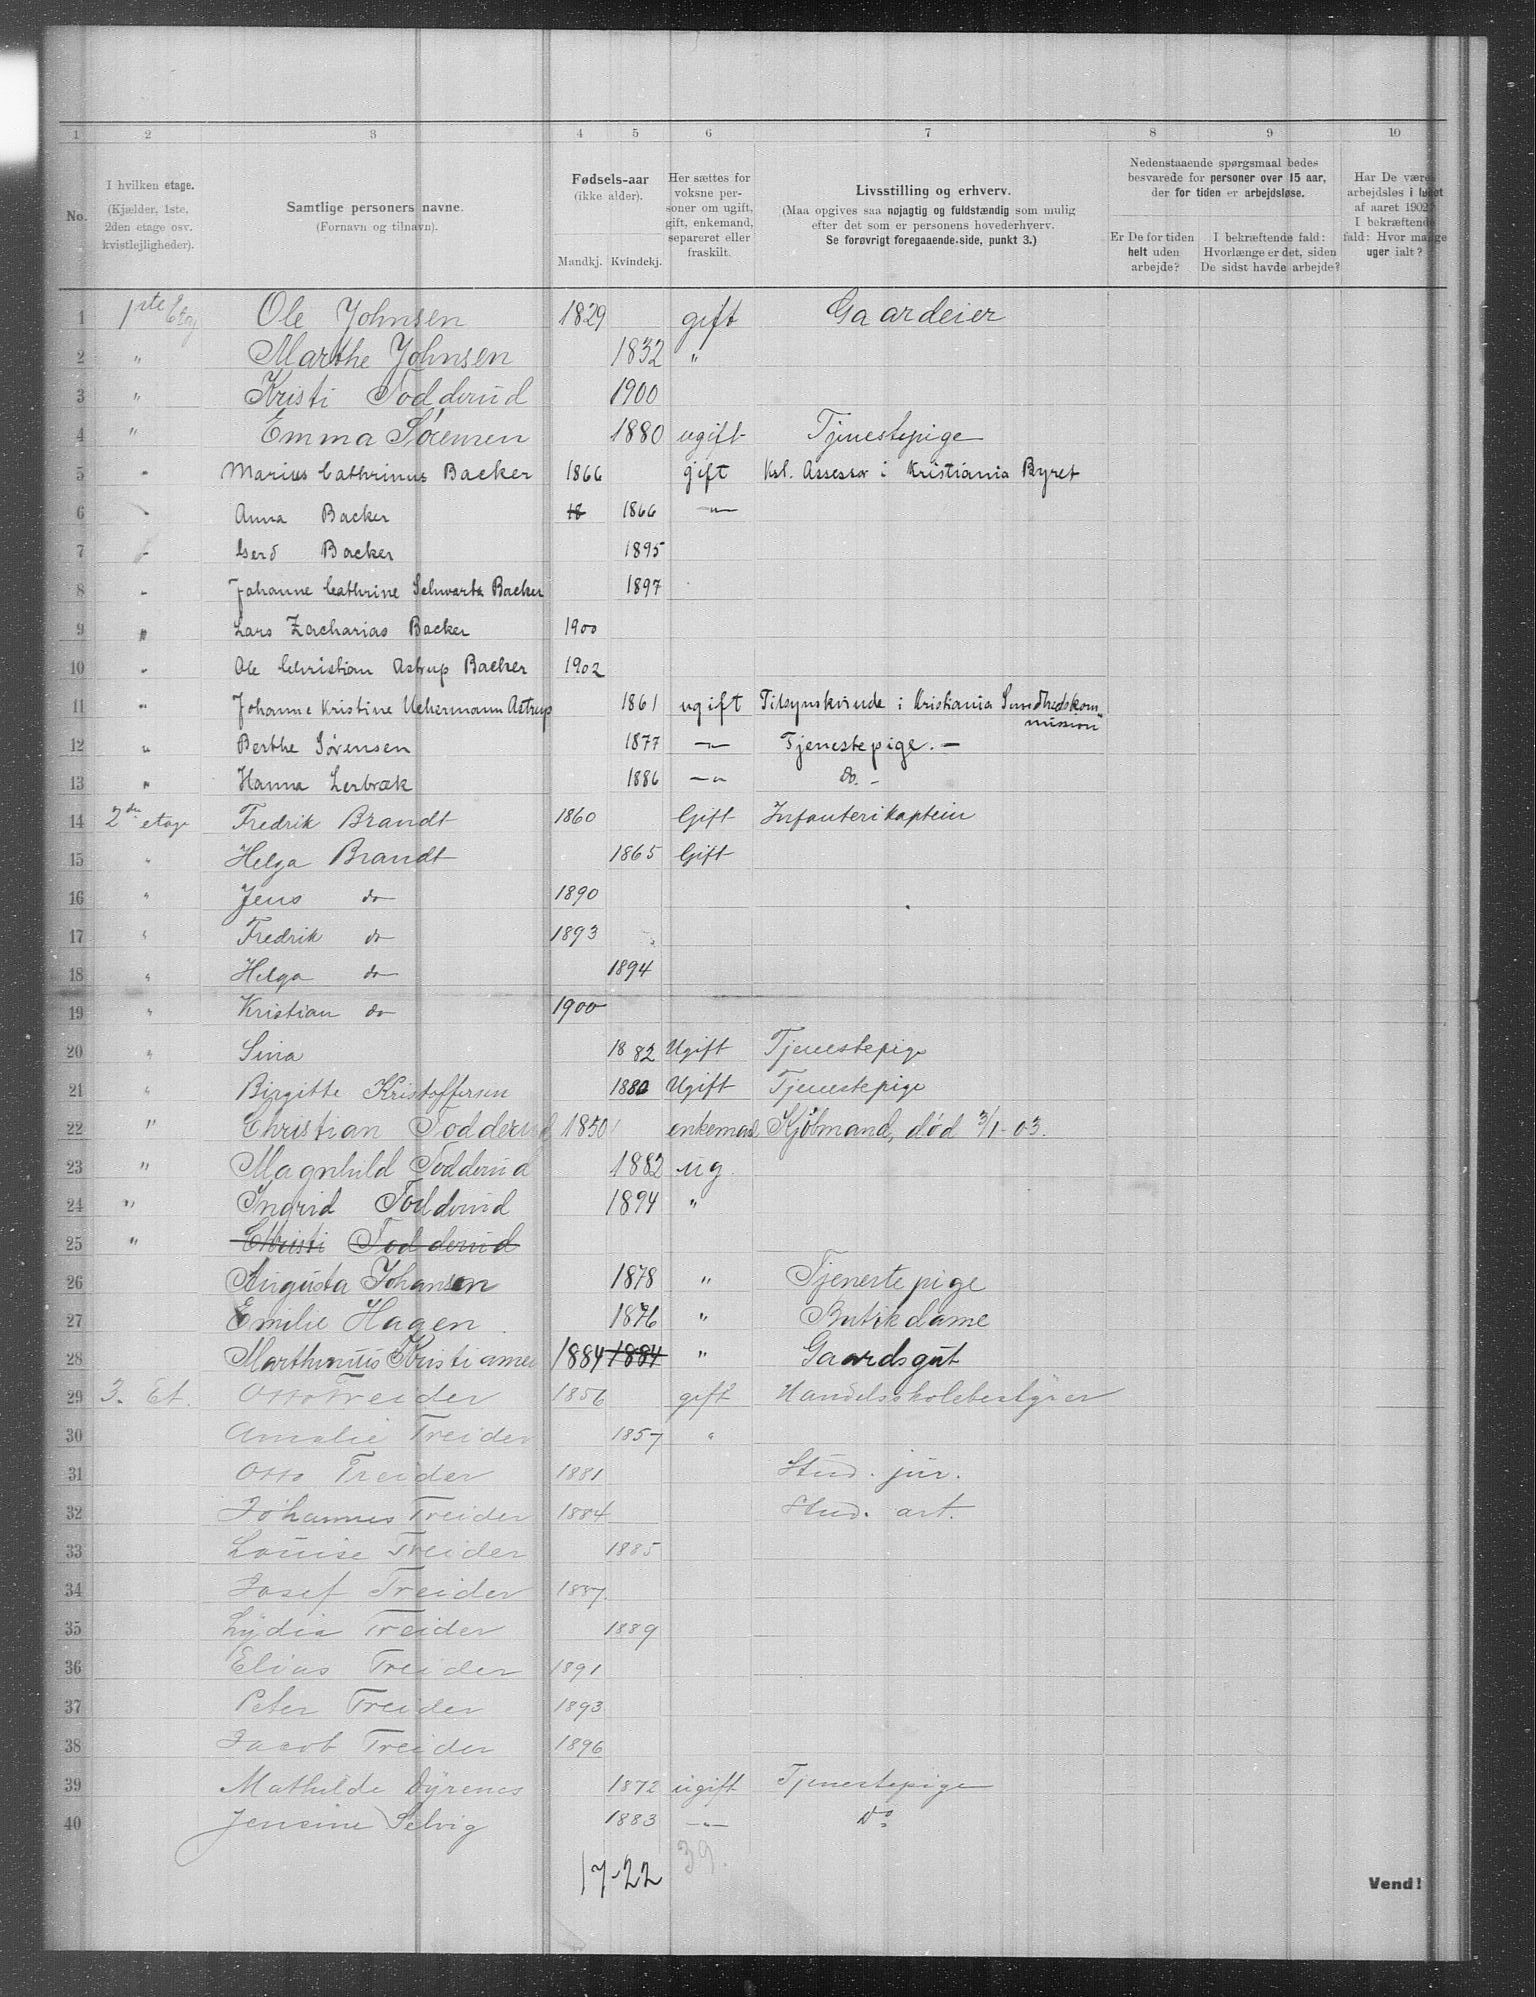 1 2 3 4 5 6 7 8 9 10
No. I hvilken etage. (Kjælder, 1ste, 2den etage osv. kvistlejligheder). Samtlige personers navne. (Fornavn og tilnavn). Fødsels-aar (ikke alder). Mandkj. Kvindekj. Her sættes for voksne personer om ugift, gift, enkemand, separeret eller fraskilt. Livsstilling og erhverv. (Maa opgives saa nøjagtig og fuldstændig som mulig efter det som er personens hovederhverv. Se forøvrigt foregaaende side, punkt 3.) Nedenstaaende spørgsmaal bedes besvarede for personer over 15 aar, der for tiden er arbejdsløse. Er De for tiden helt uden arbejde? I bekræftende fald: Hvorlænge er det, siden De sidst havde arbejde? Har De været arbejdsløs i løbet af aaret 1902? I bekræftende fald: Hvor mange uger ialt?
1 1ste Etg Ole Johnsen 1829 gift Gaardeier
2 " Marthe Johnsen 1832 "
3 " Kristi Todderud 1900
4 " Emma Sørensen 1880 ugift Tjenestepige
5 " Marius Cathrinus Backer 1866 gift Kst. Assessor i Kristiania Byret
6 " Anna Backer 18 1866 —"—
7 " Gerd Backer 1895
8 " Johanne Cathrine Schwartz Backer 1897
9 " Lars Zacharias Backer 1900
10 " Ole Christian Astrup Backer 1902
11 " Johanne Kristine Uchermann Astrup 1861 ugift Tilsynskvinde i Kristiania Sundhedskom"
mission
12 " Berthe Sørensen 1877 —"— Tjenestepige. —
13 " Hanna Lerbræk 1886 —"— Do. —
14 2den etage Fredrik Brandt 1860 Gift Infanterikaptein
15 " Helga Brandt 1865 Gift
16 " Jens do 1890
17 " Fredrik do 1893
18 " Helga do 1894
19 " Kristian do 1900
20 " Sina 1882 Ugift Tjenestepige
21 " Birgitte Kristoffersen 1880 Ugift Tjenestepige
22 " Christian Todderud 1850 enkemand Kjøbmand, død 3/1-03.
23 " Magnhild Todderud 1882 ug.
24 " Ingrid Todderud 1894 "
25 " Christi Todderud
26 Augusta Johansen 1878 " Tjenestepige
27 Emilie Hagen 1876 " Butikdame
28 Marthinius Kristiansen 1884 1884 " Gaardsgut
29 3. Et. Otto Treider 1856 gift Handelsskolebestyrer
30 Amalie Treider 1857 "
31 Otto Treider 1881 Stud. jur.
32 Johannes Treider 1884 Stud. art.
33 Louise Treider 1885
34 Josef Treider 1887.
35 Lydia Treider 1889
36 Elias Treider 1891
37 Peter Treider 1893
38 Jacob Treider 1896
39 Mathilde Dyrenes 1872 ugift Tjenestepige
40 Jensine Selvig 1883 —"— Do
17-22 39.
Vend!